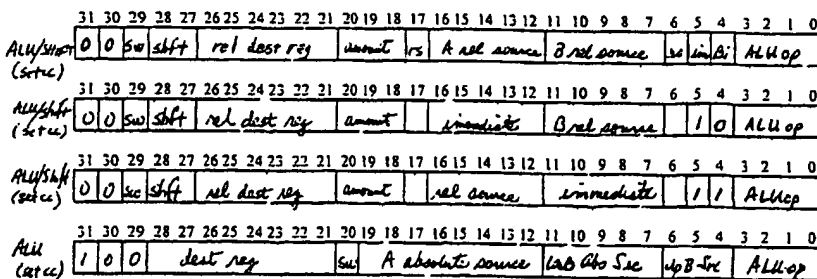 31 30 29 28 27 26 25 24 23 22 21 20 19 18 17 16 15 14 13 12 11 10 9 8 7 6 5 4 3 2 1 0
ALU/Shift 0 0 sw shft rel dest reg amount rs A rel source B rel source im Bi ALU op
(set cc)
31 30 29 28 27 26 25 24 23 22 21 20 19 18 17 16 15 14 13 12 11 10 9 8 7 6 5 4 3 2 1 0
ALU/shft 0 0 sw shft rel dest reg amount immediate B rel source 1 0 ALU op
(set cc)
31 30 29 28 27 26 25 24 23 22 21 20 19 18 17 16 15 14 13 12 11 10 9 8 7 6 5 4 3 2 1 0
ALU/Shft 0 0 sc shft rel dest reg amount rel source immediate 1 1 ALU op
(set cc)
31 30 29 28 27 26 25 24 23 22 21 20 19 18 17 16 15 14 13 12 11 10 9 8 7 6 5 4 3 2 1 0
ALU 1 0 0 dest reg sw A absolute source B Abs ALU op
(set cc)